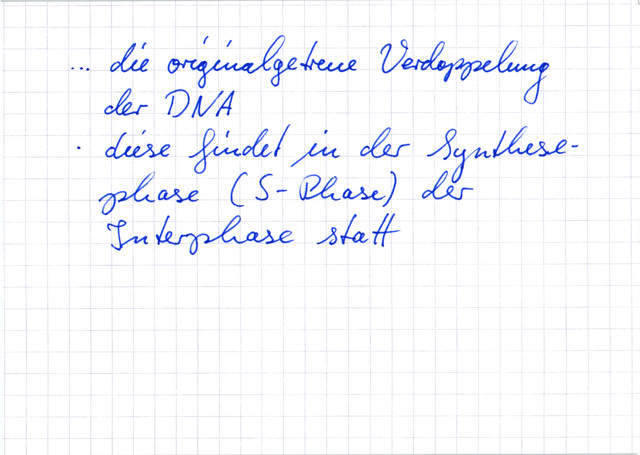 ... die originalgetreue Verdoppelung
der DNA
· diese findet in der Synthese-
phase (S-Phase) der
Interphase statt